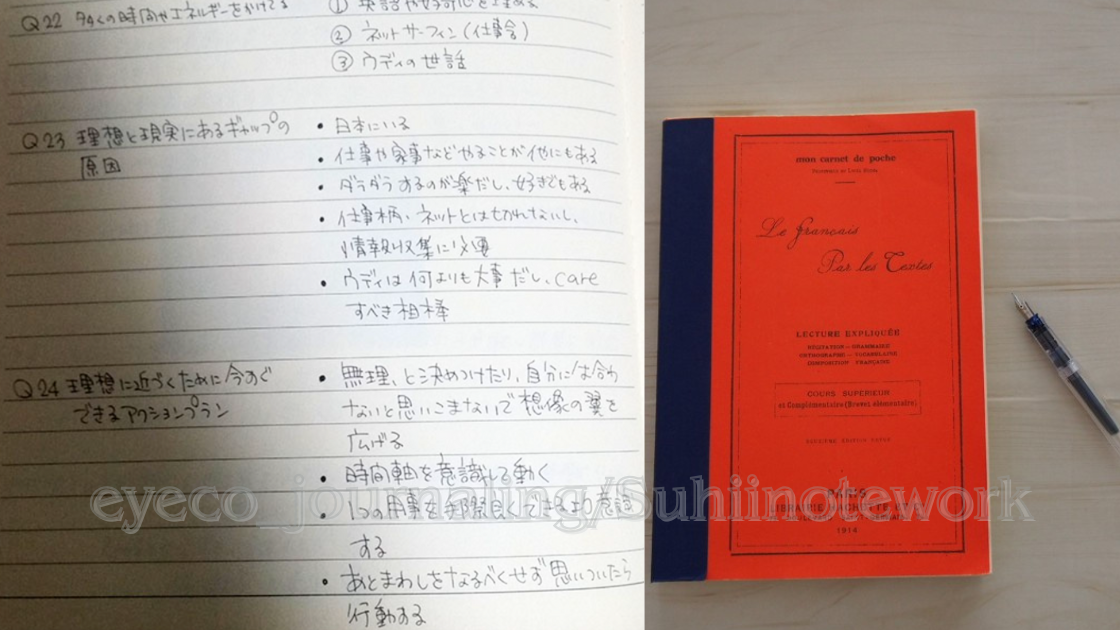 Q22 多くの時間やエネルギーをかけてる
②ネットサーフィン(仕事含)
③ウディの世話
Q23 理想と現実にあるギャップの
原因
・日本にいる
・仕事や家事などやることが他にもある
・ダラダラするのが楽だし、好きでもある
・仕事柄、ネットとはきれないし、
情報収集に必要
・ウディは何よりも大事だし、care
すべき相棒
Q24 理想に近づくために今すぐ
できるアクションプラン
・無理、と決めつけたり、自分には合わ
ないと思いこまないで想像の翼を
広げる
・時間軸を意識して動く
・1つの用事を手際良くできるよう意識
する
・あとまわしをなるべくせず思いついたら
行動する
mon carnet de poche
Le français
Par les Textes
LECTURE EXPLIQUÉE
RÉCITATION — GRAMMAIRE
ORTHOGRAPHE — VOCABULAIRE
COMPOSITION FRANÇAISE
COURS SUPÉRIEUR
et Complémentaire (Brevet élémentaire)
PARIS
LIBRAIRIE HACHETTE ET
1914
eyeco_journaling/Suhiinotework